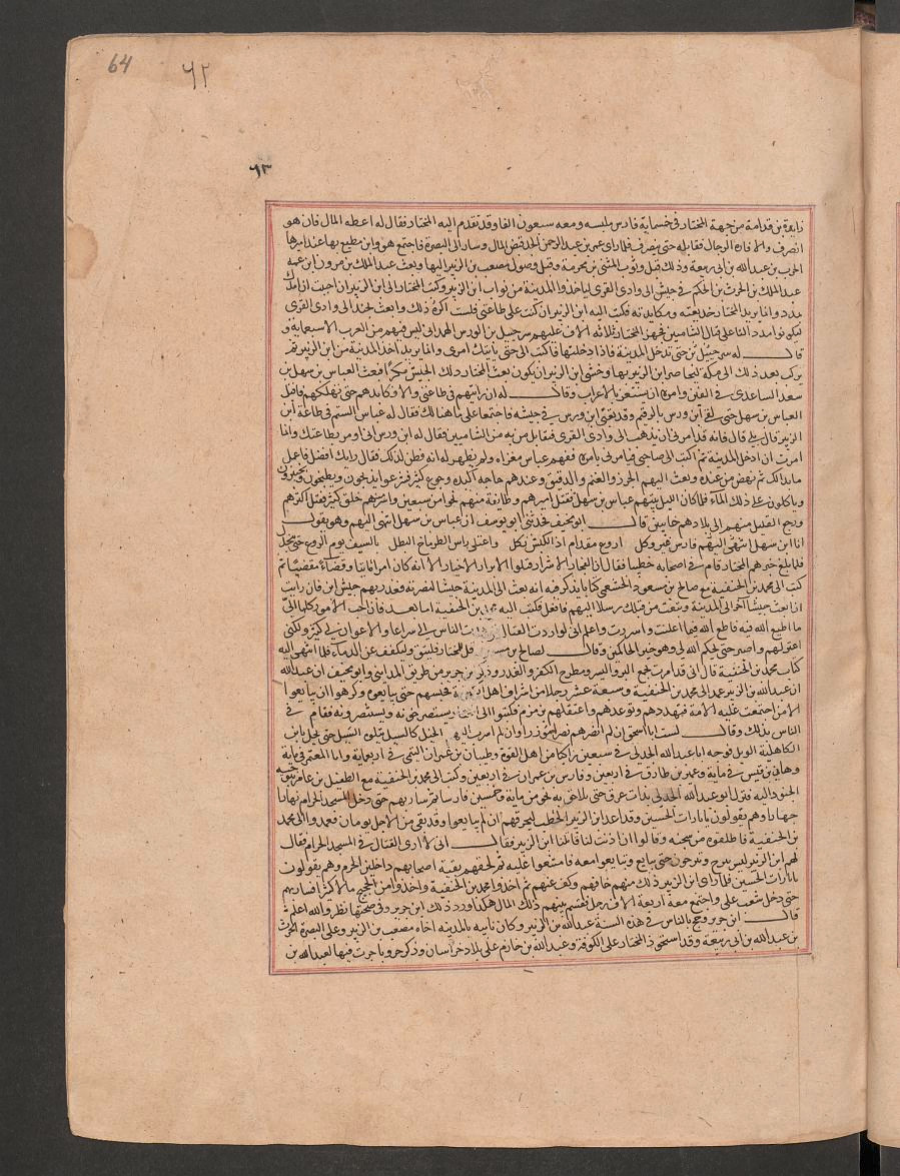 64
٦٢
٦٣
زايدة بن قدامة من جهة المختار في خمسماية فارس ملبسه ومعه سبعون الفا وقد تقدم اليه المختار فقال له اعطه المال فان هو
انصرف والا فاره الرجال فقابله حتى ينصرف فلما راى عمر بن عبد الرحمن الجد قبض المال وسار الى البصرة فاجتمع هو وابن مطيع بها عند اميرها
الحرب بن عبد الله بن ابى ربيعة وذلك قبل وثوب المثنى بن مخربة وقبل وصول مصعب بن الزبير اليها وبعث عبد الملك بن مرون ابن عمه
عبد الملك بن الحرث بن الحكم في جيش الى وادى القرى لياخذوا المدينة من نواب ابن الزبير وكتب المختار الى ابن الزبير ان احببت ان امدك
بمدد وانما يريد المختار خديعته ومكايدته فكتب اليه ابن الزبير ان كنت على طاعتى فلست اكره ذلك وابعث بجند الى وادى القرى
ليكونوا مددا لنا على قتال الشاميين فجهز المختار ثلاثة الاف عليهم سرحبيل بن الورس الهمدانى ليس فيهم من العرب الا سبعماية و
قال له سرحبيل سر حتى تدخل المدينة فاذا دخلتها فاكتب الى حتى ياتيك امرى وانما يريد اخذ المدينة من ابن الزبير ثم
يركب بعد ذلك الى مكة ليحاصر ابن الزبير بها وخشى ابن الزبير ان يكون بعث المختار ذلك الجيش مكرا فبعث العباس بن سهل بن
سعد الساعدى في الفين وامره ان يستعين بالاعراب وقال له ان رايتهم في طاعتى والا فكايدهم حتى نهلكهم فاقبل
العباس بن سهل حتى لقى ابن ورس بالرقيم وقد تعبى ابن ورس في جيشه فاجتمعا على ما هنالك فقال له عباس الستم في طاعة ابن
الزبير قال بلى قال فانه قد امرنى ان نذهب الى وادى القرى فنقاتل من به من الشاميين فقال له ابن ورس انى لم اومر بطاعتك وانما
امرت ان ادخل المدينة ثم اكتب الى صاحبى فيامرنى بامره ففهم عباس مغزاه ولم يظهر له انه فطن لذلك فقال رايك افضل فاعمل
ما بدا لك ثم نهض من عنده وبعث اليهم الجزر والغنم والدقيق وعندهم حاجة اكيدة وجوع كثير فجعلوا يذبحون ويطبخون ويختبزون
وياكلون على ذلك الماء فلما كان الليل بيتهم عباس بن سهل فقتل اميرهم وطايفة منهم نحوا من سبعين واسر منهم خلق كثير فقتل اكثرهم
ورجع القليل منهم الى بلادهم خايبين قال ابو مخنف فحدثنى ابو يوسف ان عباس بن سهل انتهى اليهم وهو يقول
انا ابن سهل فارس غير وكل اروع مقدام اذا الكبش نكل واعتلى راس الطرماح البطل بالسيف يوم الروع حتى ينجدل
فلما بلغ خبرهم المختار قام في اصحابه خطيبا فقال ان الفجار الاشرار قتلوا الابرار الاخيار الا انه كان امرا ماتيا وقضاء مقضيا ثم
كتب الى محمد بن الحنفية مع صالح بن مسعود الخثعمى كتابا يذكر فيه انه بعث الى المدينة جيشا لنصرته فغدر بهم جيش ابن الزبير فان رايت
ان ابعث جيشا اخر الى المدينة وتبعث من قبلك رسلا اليهم فافعل فكتب اليه محمد بن الحنفية اما بعد فان احب الامور كلها الى
ما اطيع الله فيه فاطع الله فيما اعلنت واسررت واعلم انى لو اردت القتال لوجدت الناس الى سراعا والاعوان لى كثيرة ولكنى
اعتزلهم واصبر حتى يحكم الله لى وهو خير الحاكمين وقال لصالح بن مسعود قل للمختار فليتق وليكفف عن الدماء فلما انتهى اليه
كتاب محمد بن الحنفية قال انى قد امرت بجمع البر واليسر ومطرح الكفر والغدر وذكر ابن جرير من طريق المداينى وابو مخنف ان عبد الله
ان عبد الله بن الزبير عمد الى محمد بن الحنفية وسبعة عشر رجلا من اشراف اهل الكوفة فحبسهم حتى يبايعوه وكرهوا ان يبايعوا
الا من اجتمعت عليه الامة فتهددهم وتوعدهم واعتقلهم بزمزم فكتبوا الى المختار يستصرخونه ويستنصرونه فقام في
الناس بذلك وقال لست ابا اسحق ان لم انصرهم نصرا موزرا وان لم اسرب اليهم الخيل كالسيل يتلوه السيل حتى يحل بابن
الكاهلية الويل فوجه ابا عبد الله الجدلى في سبعين راكبا من اهل القوة وظبيان بن عمران التيمى في اربعماية وابا المعتمر في ماية
وهانى بن قيس في ماية وعمير بن طارق في اربعين وفارس بن عمران في اربعين وكتب الى محمد بن الحنفية مع الطفيل بن عامر
الجنود اليه فنزل ابو عبد الله الجدلى بذات عرق حتى تلاحق به نحو من ماية وخمسين فارسا ثم سار بهم حتى دخل المسجد الحرام نهارا
جهارا وهم يقولون يا ثارات الحسين وقد اعد ابن الزبير الحطب ليحرقهم ان لم يبايعوا وقد بقى من الاجل يومان فعمدوا الى محمد
بن الحنفية فاطلقوه من سجنه وقالوا ان اذنت لنا قاتلنا ابن الزبير فقال انى لا ارى القتال في المسجد الحرام فقال
لهم ابن الزبير ليس نبرح وتبرحون حتى يبايع وتبايعوا معه فامتنعوا عليه ثم لحقهم بقية اصحابهم داخلين الحرم وهم يقولون
يا ثارات الحسين فلما راى ابن الزبير ذلك منهم خافهم وكف عنهم ثم اخذوا محمد بن الحنفية واخذوا من الحجيج مالا كثيرا فسار بهم
حتى دخل شعب على واجتمع معه اربعة الاف رجل فقسم بينهم ذلك المال هكذا اورد ذلك ابن جرير وفى صحتها نظر والله اعلم
قال ابن جرير وحج بالناس في هذه السنة عبد الله بن الزبير وكان نايبه بالمدينة اخاه مصعب بن الزبير وعلى البصرة الحرث
بن عبد الله بن ابى ربيعة وقد استحوذ المختار على الكوفة وعبد الله بن خازم على بلاد خراسان وذكر حروبا جرت فيها لعبد الله بن